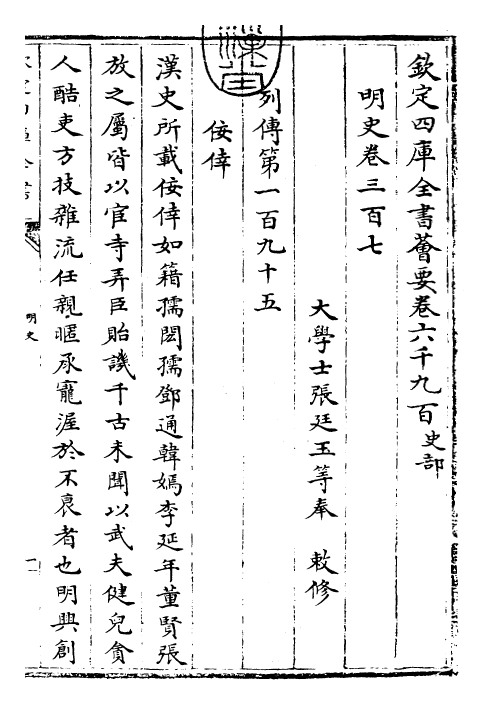 欽定四庫全書薈要卷六千九百史部
明史卷三百七
大學士張廷玉等奉 敕修
列傳第一百九十五
佞倖
漢史所載佞倖如籍孺閎孺鄧通韓嫣李延年董賢張
放之屬皆以宦寺弄臣貽譏千古未聞以武夫健兒貪
人酷吏方技雜流任親暱承寵渥於不衰者也明興創
明史
一